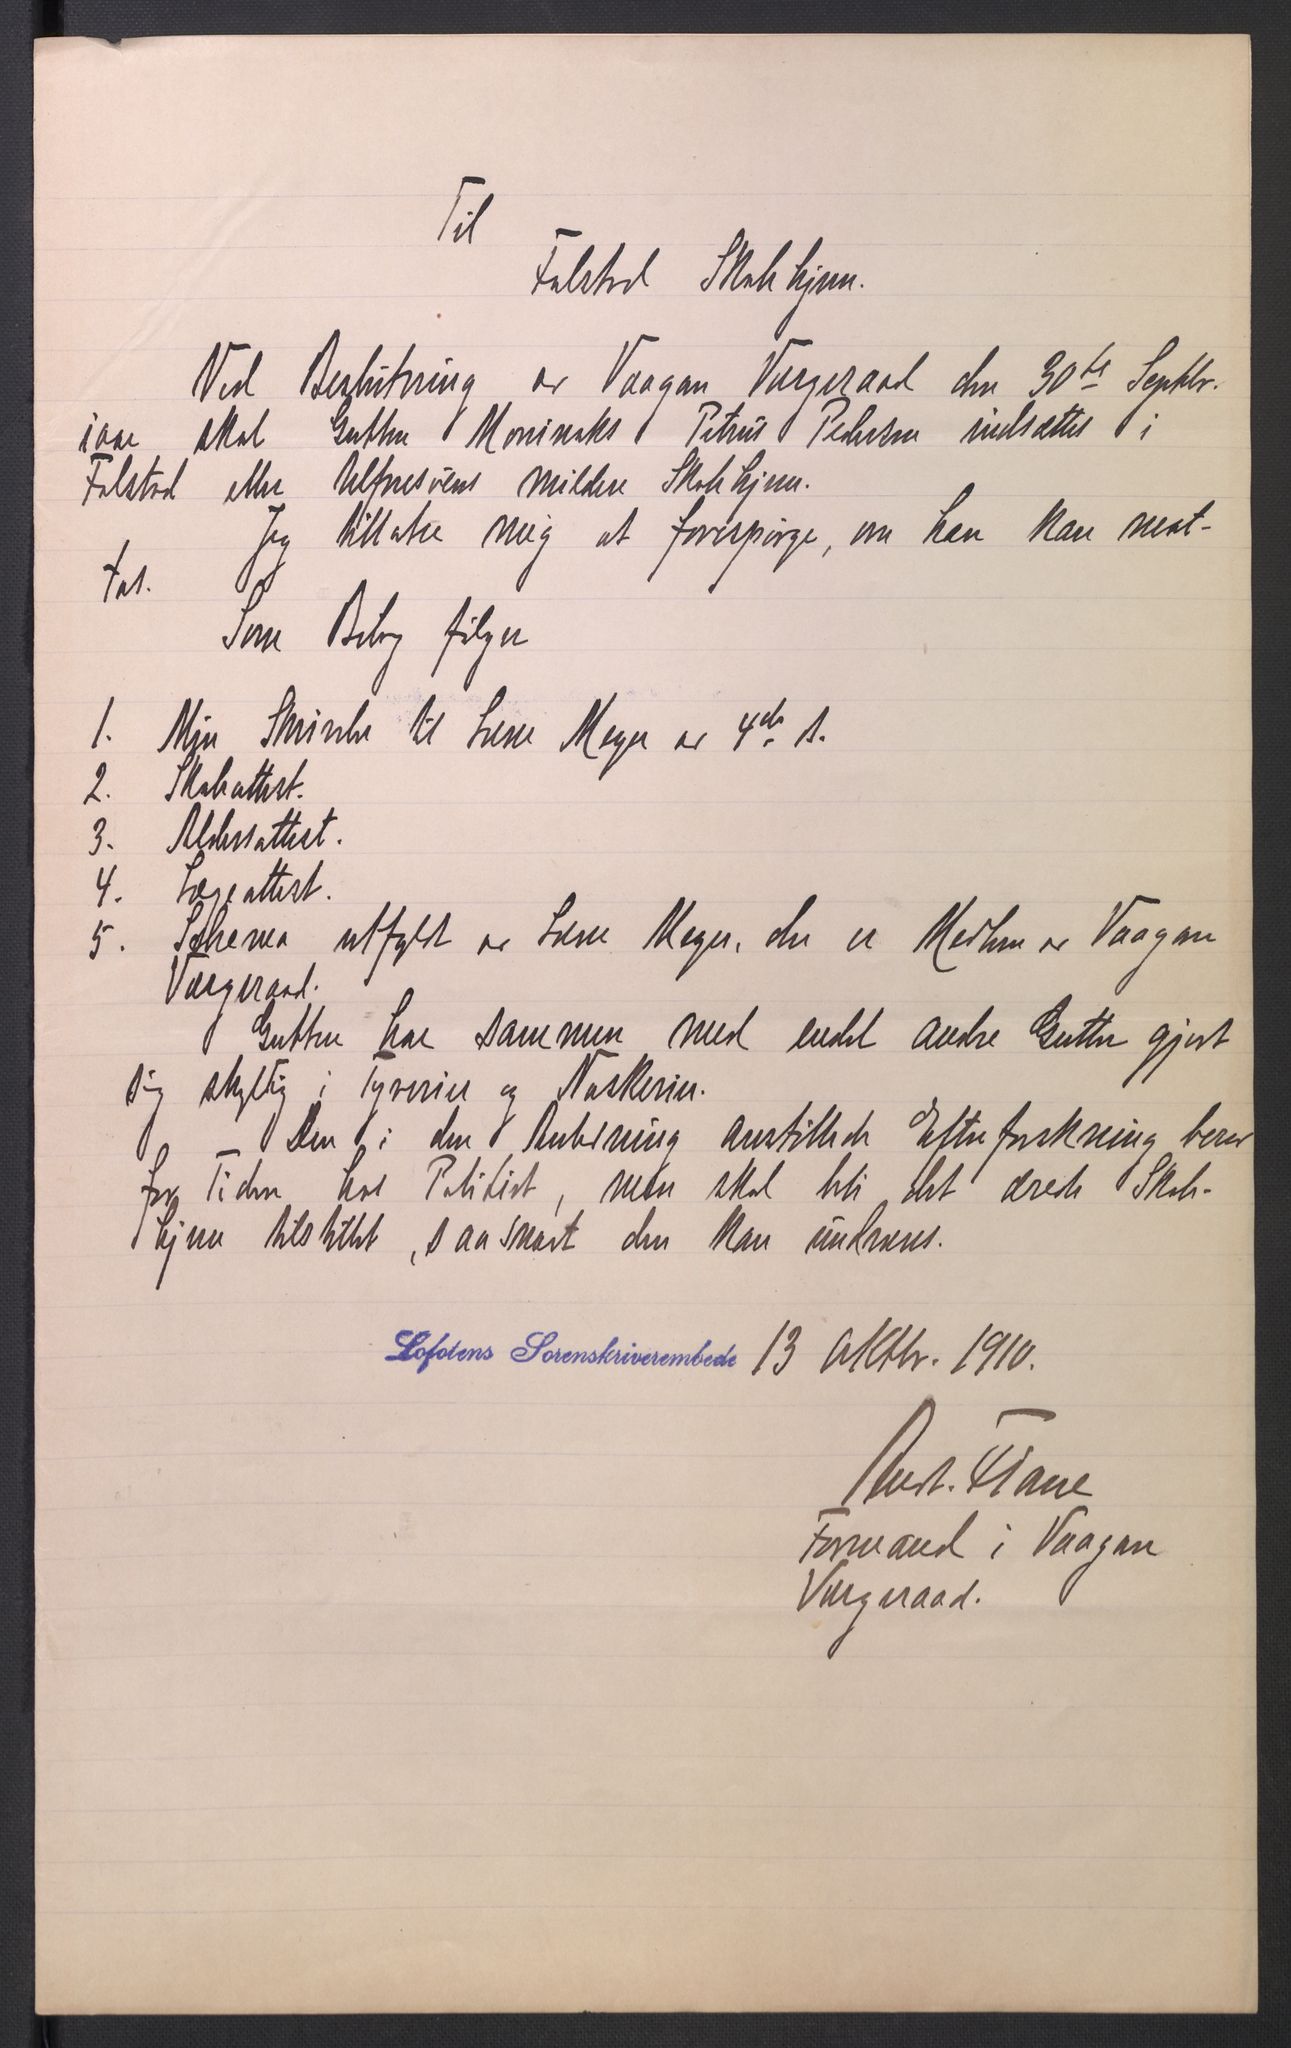 Til
Falstad Skolehjem.
Ved Beslutning av Vaagan Vergeraad den 30te Septbr.
iaar skal Gutten Petrus Pedersen indsættes i
Falstad eller Ulfnesöens mildere Skolehjem.
Jeg tillater mig at forespörge, om han kan mot-
tas.
Som Bilag fölger
1. Min Skrivelse til Læge Meyer av 4de ds.
2. Skoleattest.
3. Aldersattest.
4. Lægeattest.
5. Schema utfyldt av Læge Meyer, der er Medlem av Vaagan
Vergeraad.
Gutten har sammen med endel andre Gutter gjort
sig skyldig i Tyverier og Naskerier.
Den i den Anledning anstillede Efterforskning beror
for Tiden hos Politiet, men skal bli det ærede Skole-
hjem tilstillet, saasnart den kan undværes.
Lofotens Sorenskriverembede 13 Oktbr. 1910.
Formand i Vaagan
Vergeraad.